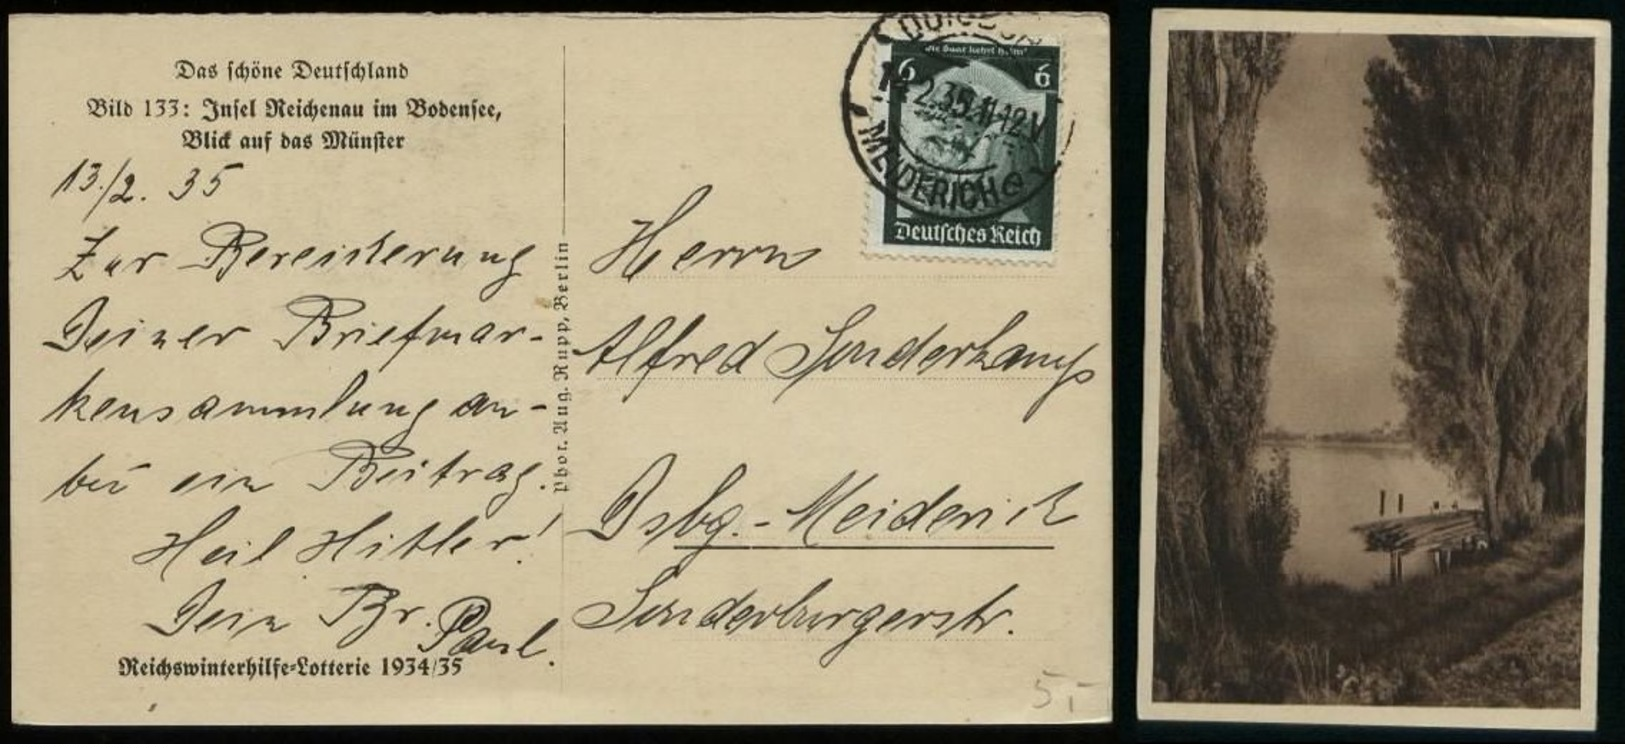 Das schöne Deutschland
Bild 133: Insel Reichenau im Bodensee,
Blick auf das Münster
13./2. 35
Zur Bereicherung
Deiner Briefmar-
kensammlung an-
bei ein Beitrag.
Heil Hitler!
Dein Br. Paul.
Reichswinterhilfe-Lotterie 1934/35
Phot. Aug. Rupp, Berlin
Die Saar kehrt heim!
6 6
Deutsches Reich
2.35.11-12 V
MEIDERICH
Herrn
Alfred Sonderkamp
Dsbg.-Meiderich
Sonderburgerstr.
5,-